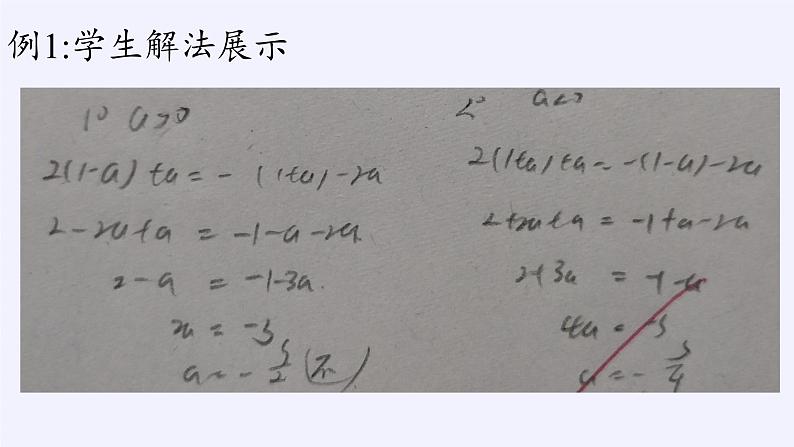 例1:学生解法展示
1° a>0
2(1-a)+a=-(1+a)-2a
2-2a+a=-1-a-2a
2-a=-1-3a
2a=-3
a=-3/2(不)
2° a<0
2(1+a)+a=-(1-a)-2a
2+2a+a=-1+a-2a
2+3a=-1-a
4a=-3
a=-3/4